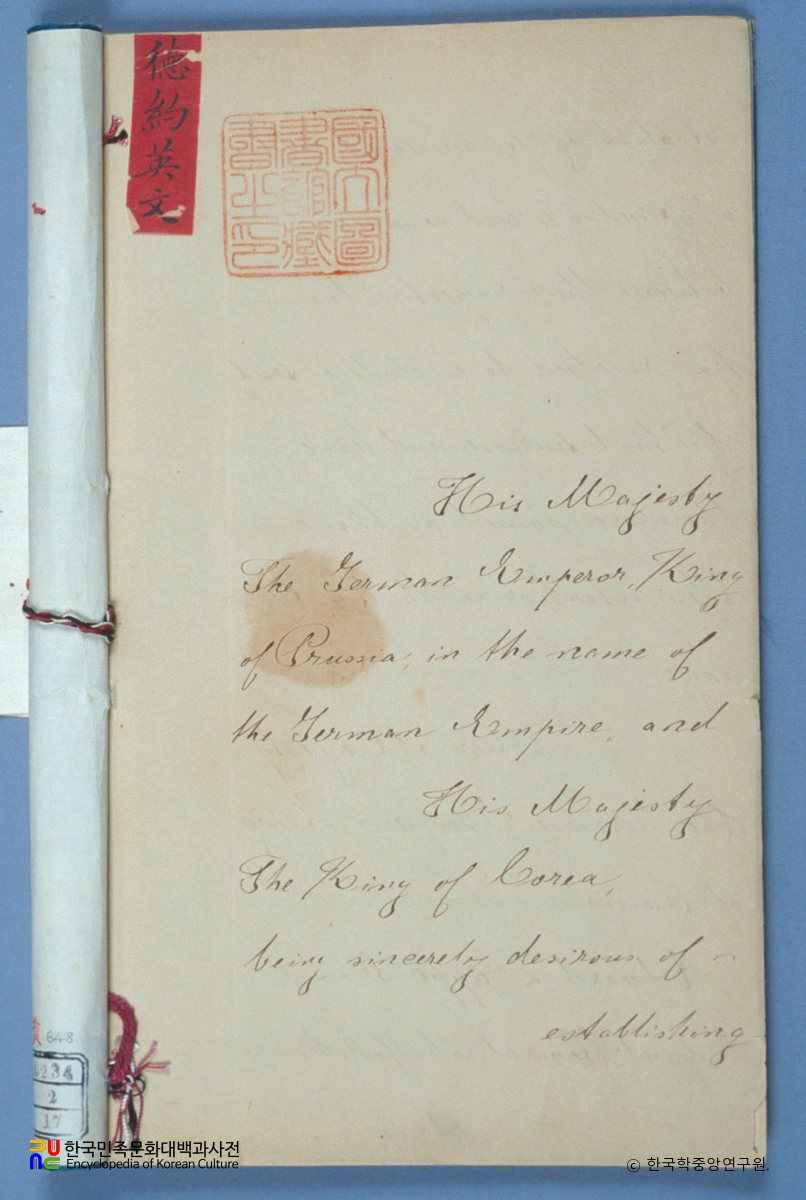 德約英文
國立圖
書館藏
書之印
His Majesty
The German Emperor, King
of Prussia, in the name of
the German Empire, and
His Majesty
The King of Corea,
being sincerely desirous of
establishing
648
2
17
한국민족문화대백과사전
Encyclopedia of Korean Culture
© 한국학중앙연구원.